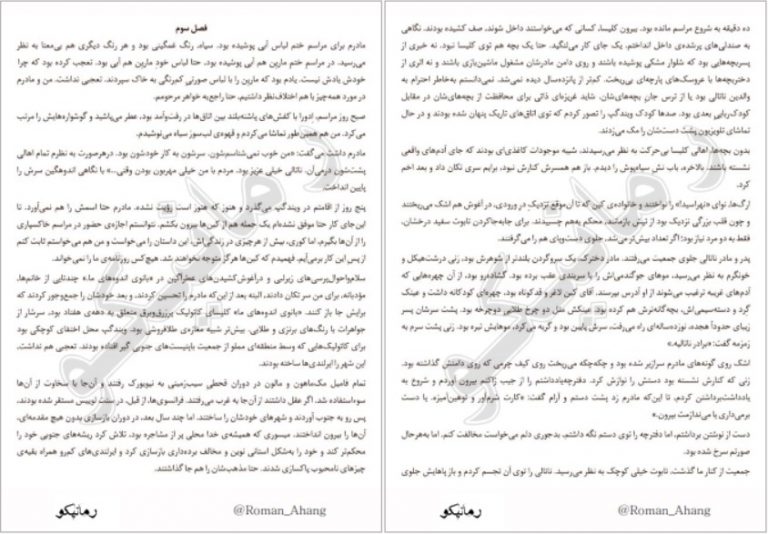 فصل سوم
مادرم برای مراسم ختم لباس آبی پوشیده بود. سیاه، رنگ غمگینی بود و هر رنگ دیگری هم بی‌معنا به نظر
می‌رسید. در مراسم ختم مارین هم آبی پوشیده بود. حتا لباس خود مارین هم آبی بود. تعجب کرده بود که چرا
خودش یادش نیست. یادم بود که مارین را با لباس صورتی کمرنگی به خاک سپردند. تعجبی نداشت. من و مادرم
در مورد همه‌چیز با هم اختلاف‌نظر داشتیم. حتا راجع‌به خواهر مرحومم.
صبح روز مراسم، اِدورا با کفش‌های پاشنه‌بلند بین اتاق‌ها در رفت‌وآمد بود، عطر می‌پاشید و گوشواره‌هایش را مرتب
می‌کرد. من هم همین‌طور تماشا می‌کردم و قهوه‌ی لب‌سوز سیاه می‌نوشیدم.
مادرم داشت می‌گفت: «من خوب نمی‌شناسم‌شون. سرشون به کار خودشون بود. درهرصورت به نظرم تمام اهالی
پشت‌شون درمی‌آن. ناتالی خیلی عزیز بود. مردم با من خیلی مهربون بودن وقتی...» با نگاهی اندوهگین سرش را
پایین انداخت.
پنج روز از اقامتم در ویندگپ می‌گذرد و هنوز که هنوز است رؤیت نشده. مادرم حتا اسمش را هم نمی‌آورد. تا
این‌جای کار حتا موفق نشده‌ام یک جمله هم از کین‌ها بیرون بکشم. نتوانستم اجازه‌ی حضور در مراسم خاکسپاری
را از آن‌ها بگیرم، اما کوری، بیش از هرچیزی در زندگی‌اش، این داستان را می‌خواست و من هم می‌خواستم ثابت کنم
از پس این کار برمی‌آیم. فهمیدم که کین‌ها هرگز متوجه نخواهند شد. هیچ‌کس روزنامه‌ی ما را نمی‌خواند.
سلام‌واحوال‌پرسی‌های زیرلبی و درآغوش‌کشیدن‌های عطرآگین در «بانوی اندوه‌های ما» چندتایی از خانم‌ها،
مؤدبانه، برای من سر تکان دادند، البته بعد از این‌که مادرم را تحسین کردند، و بعد خودشان را جمع‌وجور کردند که
برایش جا باز کنند. «بانوی اندوه‌های ما» کلیسای کاتولیک پرزرق‌وبرق متعلق به دهه‌ی هفتاد بود. سرشار از
جواهرات با رنگ‌های برنزی و طلایی، بیش‌تر شبیه مغازه‌ی طلافروشی بود. ویندگپ محل اختفای کوچکی بود
برای کاتولیک‌هایی که وسط منطقه‌ای مملو از جمعیت باپتیست‌های جنوبی گیر افتاده بودند. تعجبی هم نداشت،
این شهر را ایرلندی‌ها ساخته بودند.
تمام فامیل مک‌ماهون و مالون در دوران قحطی سیب‌زمینی به نیویورک رفتند و آن‌جا با سخاوت از آن‌ها
سوءاستفاده شد. اگر عقل داشتند از آن‌جا به غرب می‌رفتند. فرانسوی‌ها، از قبل، در سنت لوییس مستقر شده بودند،
پس رو به جنوب آوردند و شهرهای خودشان را ساختند. اما چند سال بعد، در دوران بازسازی بدون هیچ مقدمه‌ای،
آن‌ها را بیرون انداختند. میسوری که همیشه‌ی خدا محلی پر از مشاجره بود، تلاش کرد ریشه‌های جنوبی خود را
محکم‌تر کند و خود را به‌شکل استانی نوین و مخالف برده‌داری بازسازی کرد و ایرلندی‌های کم‌رو همراه بقیه‌ی
چیزهای نامحبوب پاکسازی شدند. حتا مذهب‌شان را هم جا گذاشتند.
رمانیکو
@Roman_Ahang
ده دقیقه به شروع مراسم مانده بود. بیرون کلیسا، کسانی که می‌خواستند داخل شوند، صف کشیده بودند. نگاهی
به صندلی‌های پرشده‌ی داخل انداختم. یک جای کار می‌لنگید. حتا یک بچه هم توی کلیسا نبود. نه خبری از
پسربچه‌هایی بود که شلوار مشکی پوشیده باشند و روی دامن مادرشان مشغول ماشین‌بازی باشند و نه اثری از
دختربچه‌ها با عروسک‌های پارچه‌ای بی‌ریخت. کم‌تر از پانزده‌سال دیده نمی‌شد. نمی‌دانستم به‌خاطر احترام به
والدین ناتالی بود یا از ترس جانِ بچه‌های‌شان، شاید غریزه‌ای ذاتی برای محافظت از بچه‌های‌شان در مقابل
کودک‌ربایی بعدی بود. صدها کودک ویندگپ را تصور کردم که توی اتاق‌های تاریک پنهان شده بودند و در حال
تماشای تلویزیون پشت دست‌شان را مک می‌زدند.
بدون بچه‌ها، اهالی کلیسا بی‌حرکت به نظر می‌رسیدند. شبیه موجودات کاغذی‌ای بودند که جای آدم‌های واقعی
نشسته باشند. بالاخره، باب نش سیاه‌پوش را دیدم. باز هم همسرش کنارش نبود. برایم سری تکان داد و بعد اخم
کرد.
ارگ‌ها، نوای «نهراسید» را نواختند و خانواده‌ی کین که تا آن‌موقع نزدیکِ درِ ورودی، در آغوش هم اشک می‌ریختند
و چون قلب بزرگی نزدیک بود از تپش بازمانند، محکم به‌هم چسبیدند. برای جابه‌جاکردن تابوت سفید درخشان،
فقط به دو مرد نیاز بود؛ اگر تعداد بیش‌تر می‌شد، جلوی دست‌وپای هم را می‌گرفتند.
پدر و مادر ناتالی جلوی جمعیت می‌رفتند. مادر دخترک، یک سروگردن بلندتر از شوهرش بود. زنی درشت‌هیکل و
خونگرم به نظر می‌رسید، موهای جوگندمی‌اش را با سربندی عقب برده بود. گشاده‌رو بود، از آن چهره‌هایی که
آدم‌های غریبه ترغیب می‌شوند از او آدرس بپرسند. آقای کین لاغر و قدکوتاه بود، چهره‌ای کودکانه داشت و عینک
گرد و دسته‌سیمی‌اش، بچگانه‌ترش هم کرده بود. عینکش مثل دو چرخ طلایی دوچرخه بود. پشت سرشان پسر
زیبای حدوداً هجده، نوزده‌ساله‌ای راه می‌رفت، سرش پایین بود و گریه می‌کرد، موهایش تیره بود. زنی پشت سرم به
زمزمه گفت: «برادر ناتالیه.»
اشک روی گونه‌های مادرم سرازیر شده بود و چکه‌چکه می‌ریخت روی کیف چرمی که روی دامنش گذاشته بود.
زنی که کنارش نشسته بود دستش را نوازش کرد. دفترچه‌یادداشتم را از جیب ژاکتم بیرون آوردم و شروع به
یادداشت‌برداشتن کردم، تا این‌که مادرم زد پشت دستم و آرام گفت: «کارت شرم‌آور و توهین‌آمیزه. یا دست
برمی‌داری یا می‌ندازمت بیرون.»
دست از نوشتن برداشتم، اما دفترچه را توی دستم نگه داشتم. بدجوری دلم می‌خواست مخالفت کنم، اما به‌هرحال
صورتم سرخ شده بود.
جمعیت از کنار ما گذشت. تابوت خیلی کوچک به نظر می‌رسید. ناتالی را توی آن تجسم کردم و باز پاهایش جلوی
رمانیکو
@Roman_Ahang